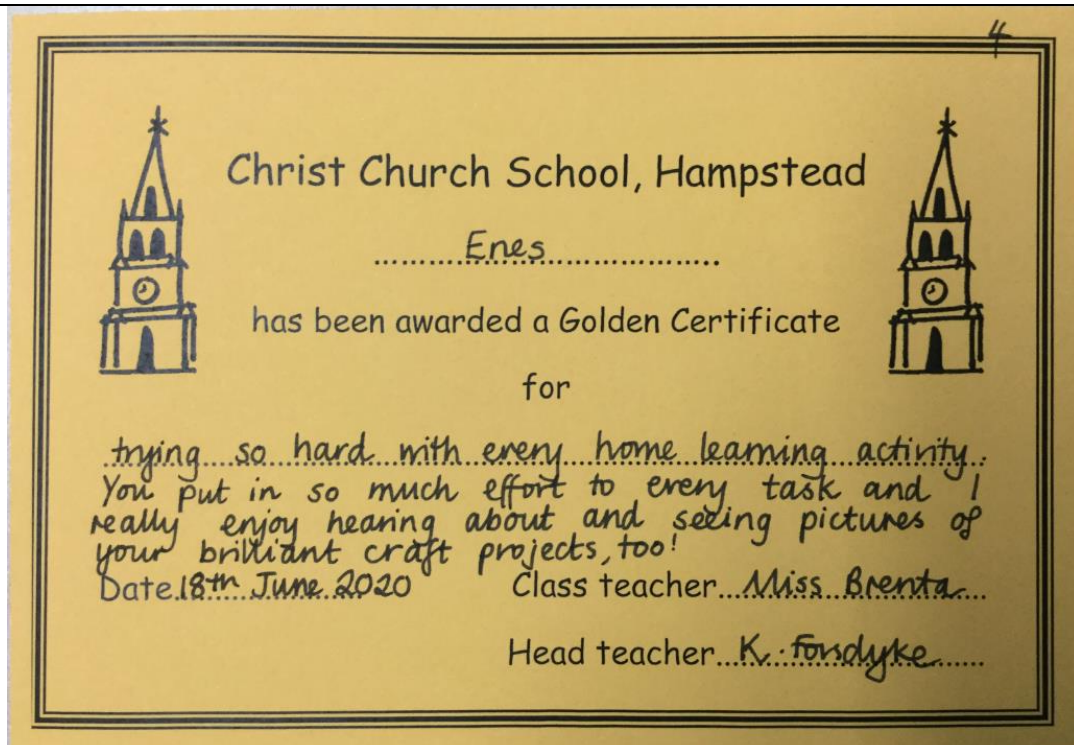 4
Christ Church School, Hampstead
Enes
has been awarded a Golden Certificate
for
trying so hard with every home learning activity.
You put in so much effort to every task and I
really enjoy hearing about and seeing pictures of
your brilliant craft projects, too!
Date 18th June 2020 Class teacher Miss Brenta
Head teacher K. Forsdyke